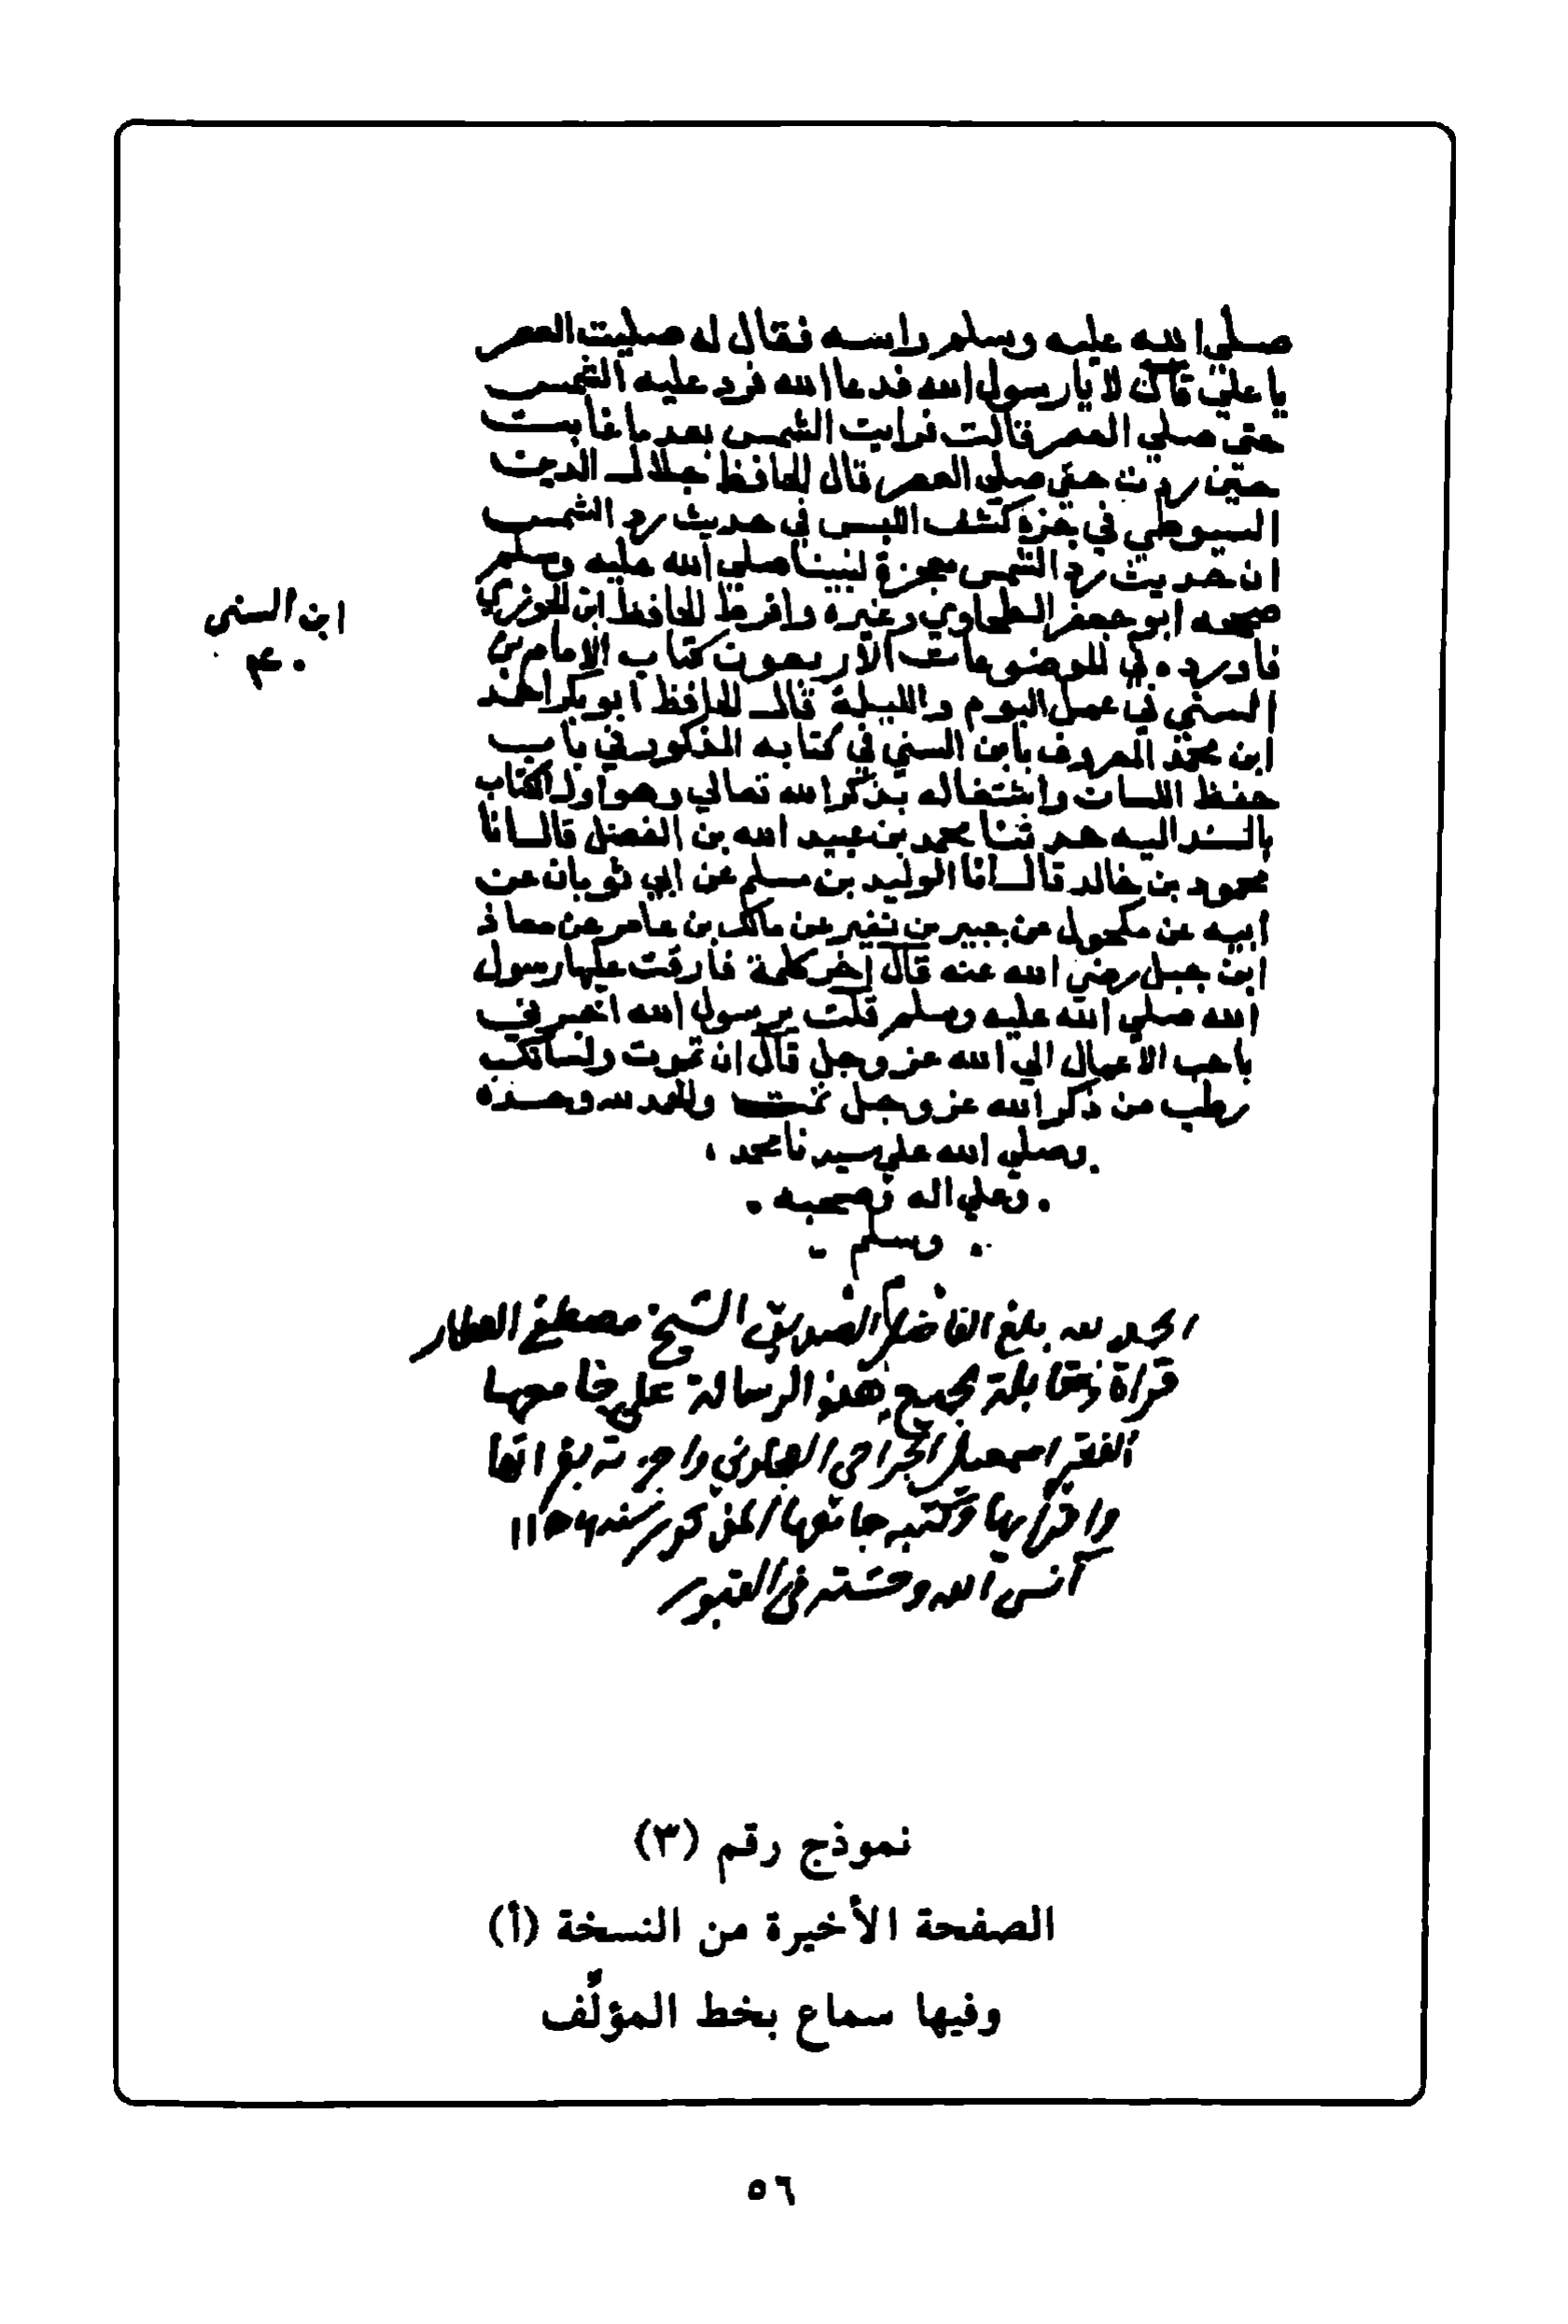 صلي الله عليه وسلم راسه فقال له صليت العصر
يا علي قال لا يا رسول الله فدعا الله فرد عليه الشمس
حتي صلي العصر قالت فرايت الشمس بعد ما غابت
حين ردت حتي صلي العصر قال الحافظ جلال الدين
السيوطي في جزء كشف اللبس في حديث رد الشمس
ان حديث رد الشمس معجزة لنبينا صلي الله عليه وسلم
صححه ابو جعفر الطحاوي وغيره وافرط الحافظ ابن الجوزي
فاورده في الموضوعات الاربعون كتاب الامام بن
السني في عمل اليوم والليلة قال الحافظ ابو بكر احمد
ابن محمد المعروف بابن السني في كتابه المذكور في باب
حفظ اللسان واشتغاله بذكر الله تعالي وهو اول الكتاب
بالسند اليه حدثنا محمد بن عبيد الله بن الفضل قال انا
محمود بن خالد قال انا الوليد بن مسلم عن ابي ثوبان عن
ابيه عن مكحول عن جبير بن نفير عن مالك بن عامر عن معاذ
ابن جبل رضي الله عنه قال اخر كلمة فارقت عليها رسول
الله صلي الله عليه وسلم قلت يرسول الله اخبرني
باحب الاعمال الي الله عز وجل قال ان تموت ولسانك
رطب من ذكر الله عز وجل تمت والحمد لله وحده
وصلي الله علي سيدنا محمد
وعلي اله وصحبه
وسلم
ابن السني
٤٠
الحمد لله بلغ الفاضل الصديق الشيخ مصطفى العطار
قراة ومقابلة لجميع هذه الرسالة على جامعها
الفقير اسمعيل الجراحي العجلوني واجزته بها
واقرائها وكتبه جامعها المذكور سنه
آنس الله وحشته في القبور
نموذج رقم (٣)
الصفحة الأخيرة من النسخة (أ)
وفيها سماع بخط المؤلِّف
٥٦